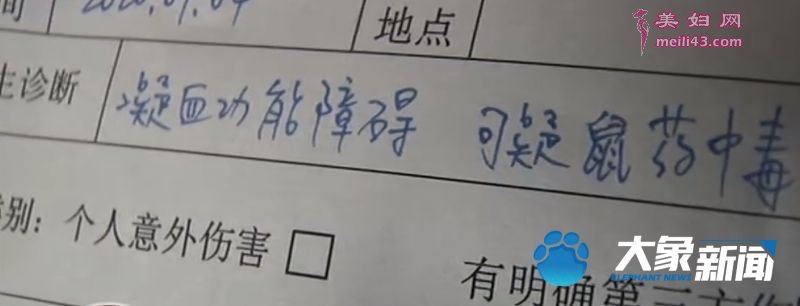 间 2020.09.04 地点
生诊断 凝血功能障碍 可疑鼠药中毒
类别: 个人意外伤害 □ 有明确第三方
美妇网
meili43.com
大象新闻
ELEPHANT NEWS